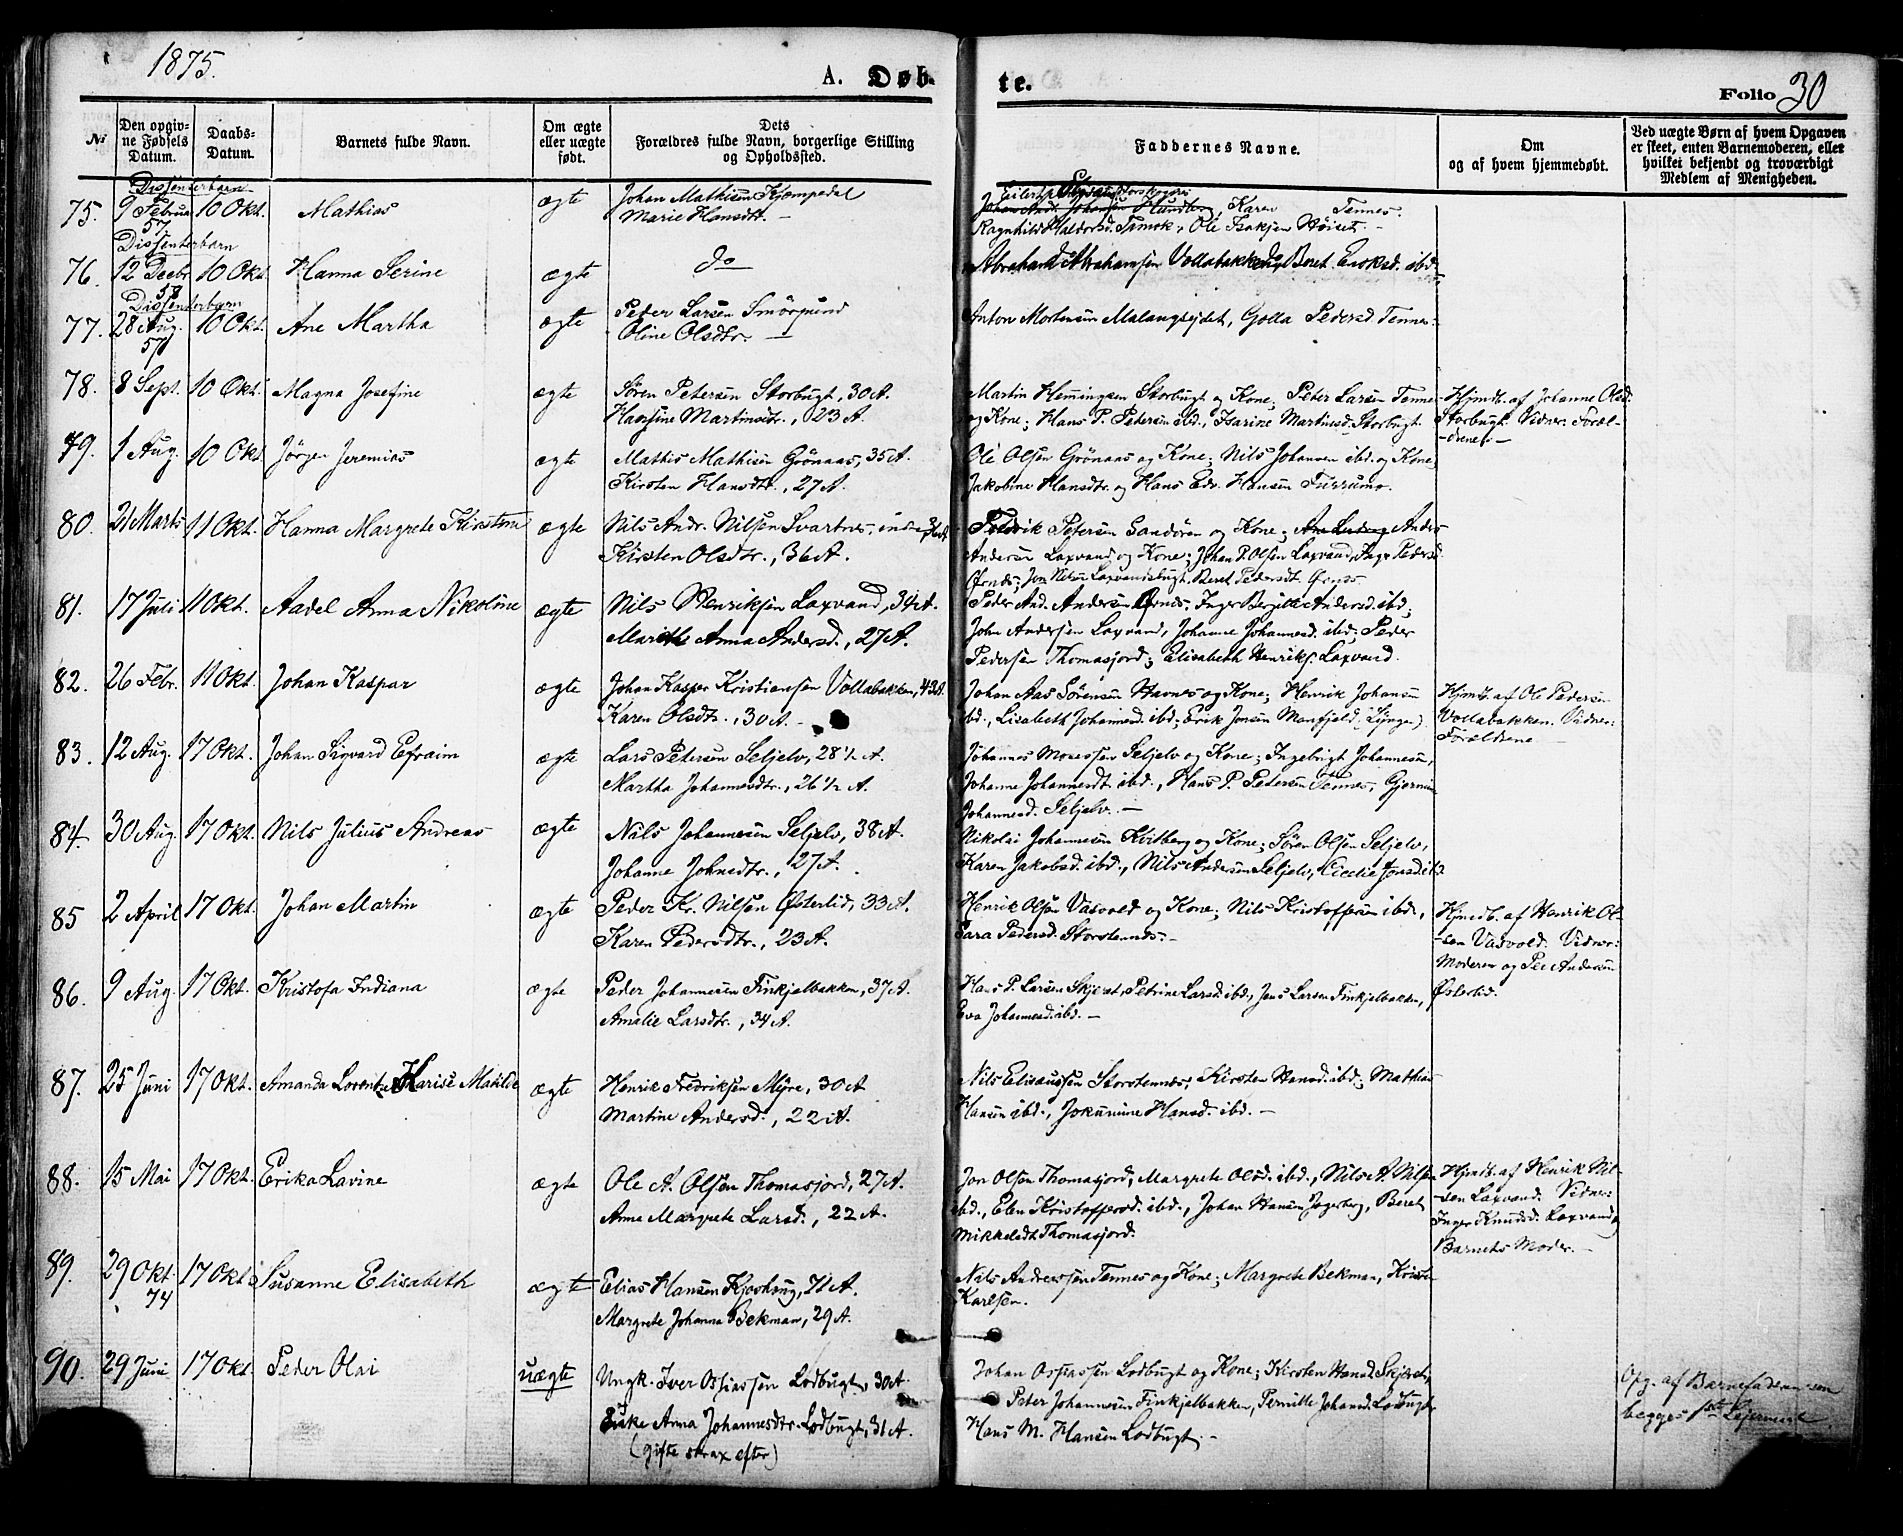 1875.
A. Døb-
te.
Folio 30
No
Den opgiv-
ne Fødsels
Datum.
Daabs-
Datum.
Barnets fulde Navn.
Om ægte
eller uægte
født.
Dets
Forældres fulde Navn, borgerlige Stilling
og Opholdssted.
Faddernes Navne.
Om
og af hvem hjemmedøbt.
Ved uægte Børn af hvem Opgaven
er skeet, enten Barnemoderen, eller
hvilket bekjendt og troværdigt
Medlem af Menigheden.
Dissenterbarn
75. 9 Februar 57 10 Okt. Mathias ægte Johan Mathisen Kjempedal
Marie Hansdtr. —
Karen Tennes.
Ragnhild Haldorsd. Tamok, Ole Isaksen Høiset. -
Dissenterbarn
76. 12 Decbr. 58 10 Okt. Hanna Serine ægte do
Abraham Abrahamsen Vollabakken, Beret Enoksd. ibd.
Dissenterbarn
77. 28 Aug. 57 10 Okt. Ane Martha ægte Peder Larsen Smörsund
Oline Olsdtr. —
Anton Mortensen Malangseidet, Golla Pedersd Tennes.
78. 8 Sept. 10 Okt. Magna Josefine ægte Sören Petersen Storbugt, 30 A.
Hansine Martinsdtr., 23 A.
Martin Hemmingsen Storbugt og Kone; Peter Larsen Tennes
og Kone; Hans P. Petersen ibd., Isarine Martinsd. Storbugt.
Hjmdb. af Johanne Olsd.
Storbugt. Vidner: Foræl-
-drene. —
79. 1 Aug. 10 Okt. Jörgen Jeremias ægte Mathis Mathisen Grönaas, 35 A.
Kirsten Hansdtr., 27 A.
Ole Olsen Grönaas og Kone; Nils Johansen ibd. og Kone
Jakobine Hansdtr. og Hans Edv. Hansen Furrumo.
80. 21 Marts 11 Okt. Hanna Margrete Kirstine ægte Nils Andr. Nilsen Svartnes, indre 36 A.
Kirsten Olsdtr., 36 A.
Fredrik Petersen Sandören og Kone; Anders
Andersen Laxvand og Kone; Johan P. Olsen Laxvand, Inger Pedersd.
Örnes; Jon Nilsen Laxvandsbugt, Beret Pedersdt. Örnes.
81. 17 Juli 11 Okt. Aadel Anna Nikoline ægte Nils Henriksen Laxvand, 34 A.
Marith Anna Andersd., 27 A.
Peder And. Andersen Örnes, Inger Bergitte Andersd. ibd;
John Andersen Laxvand, Johanne Johannesd. ibd; Peder
Pedersen Thomasjord; Elisabeth Henriks. Laxvand.
82. 26 Febr. 11 Okt. Johan Kaspar ægte Johan Kasper Kristiansen Vollabakken, 43 A.
Karen Olsdtr., 30 A. -
Johan Aas Sörensen Havnes og Kone; Henrik Johansen
ibd., Lisabeth Johannesd. ibd; Erik Jonsen Manfjeld (Lyngen)
Hjmdb. af Ole Pedersen
Vollabakken. Vidner:
Forældrene —
83. 12 Aug. 17 Okt. Johan Sigvard Efraim ægte Lars Petersen Seljelv, 28 1/2 A.
Martha Johannesdtr., 26 1/2 A.
Johannes Monessen Seljelv og Kone; Ingebrigt Johannesen,
Johanne Johannesdt ibd., Hans P. Petersen Tennes, Gjermine
Johannesd. Seljelv. —
84. 30 Aug. 17 Okt. Nils Julius Andreas ægte Nils Johannesen Seljelv, 38 A.
Johanne Johnsdtr., 27 A.
Nikolai Johannesen Kvitberg og Kone; Sören Olsen Seljelv,
Karen Jakobsd. ibd., Nils Andersen Seljelv, Cecelie Jonsd. ibd.
85 2 April 17 Okt. Johan Martin ægte Peder Kr. Nilsen Österlid, 33 A.
Karen Pedersdtr., 23 A.
Henrik Olsen Vasvold og Kone; Nils Kristoffersen ibd.,
Sara Pedersd. Storstennes. -
Hjmdb. af Henrik Ol-
-sen Vasvold. Vidner:
Moderen og Per Andersen
Österlid.
86. 9 Aug. 17 Okt. Kristofa Indiana ægte Peder Johannesen Finkjelbakken, 37 A.
Amalie Larsdtr., 34 A.
Hans P. Larsen Skjeret, Petrine Larsd. ibd., Jens Larsen Finkjelbakken,
Eva Johannesd. ibd. —
87. 25 Juni 17 Okt. Amanda Lorentze Marise Matilde ægte Henrik Fredriksen Myre, 30 A
Martine Andersd., 22 A.
Nils Elisæussen Storstennes, Kirsten Hansd. ibd; Mathias
Hansen ibd., Jokumine Hansd. ibd. —
88. 15 Mai 17 Okt. Erika Lavine ægte Ole A. Olsen Thomasjord, 27 A.
Anne Margrete Larsd., 22 A.
Jon Olsen Thomasjord, Margrete Olsd. ibd., Nils A. Nilsen
ibd., Elen Kristoffersd. ibd., Johan Hansen Jægerberg, Beret
Mikkelsdt Thomasjord.
Hjmdb. af Henrik Nil-
-sen Laxvand. Vidner:
Inger Knudsd. Laxvand og
Barnets Moder. —
89. 29 Okt. 74 17 Okt. Susanne Elisabeth ægte Elias Hansen Kjoshaug, 71 A.
Margrete Johanna Bekman, 29 A.
Nils Andreassen Tennes og Kone; Margrete Bekman,
Karlsen.
90. 29 Juni 17 Okt. Peder Olai uægte Ungk. Iver Ossiassen Lodbugt, 30 A.
Enke Anna Johannesdtr. Lodbugt, 31 A.
(gifte strax efter)
Johan Ossiassen Lodbugt og Kone; Kirsten Hansd. Skjeret,
Peter Johannesen Finkjelbakken, Pernille Johansd. Lodbugt,
Hans M. Hansen Lodbugt. -
Opg. af Barnefaderen som
begges 1ste Leiermaal